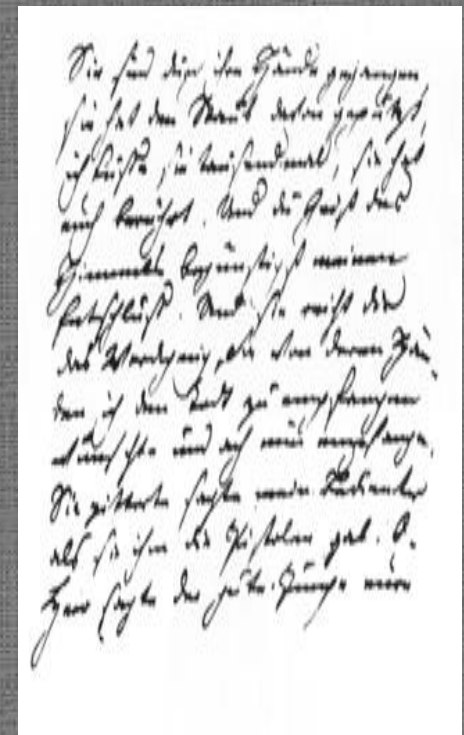 Sie sind durch ihre Hände gegangen
sie hat den Staub davon geputzt,
ich küsse sie tausendmal, sie hat
euch berührt. Und du Geist des
Himmels begünstigst meinen
Entschluß. Und sie reicht dir
das Werckzeug, Sie von deren Hän-
den ich den Todt zu empfangen
wünschte und ach nun empfange.
Sie zitterte sagte mein Bedienter
als sie ihm die Pistolen gab. O.
Herr sagte der gute Junge eure